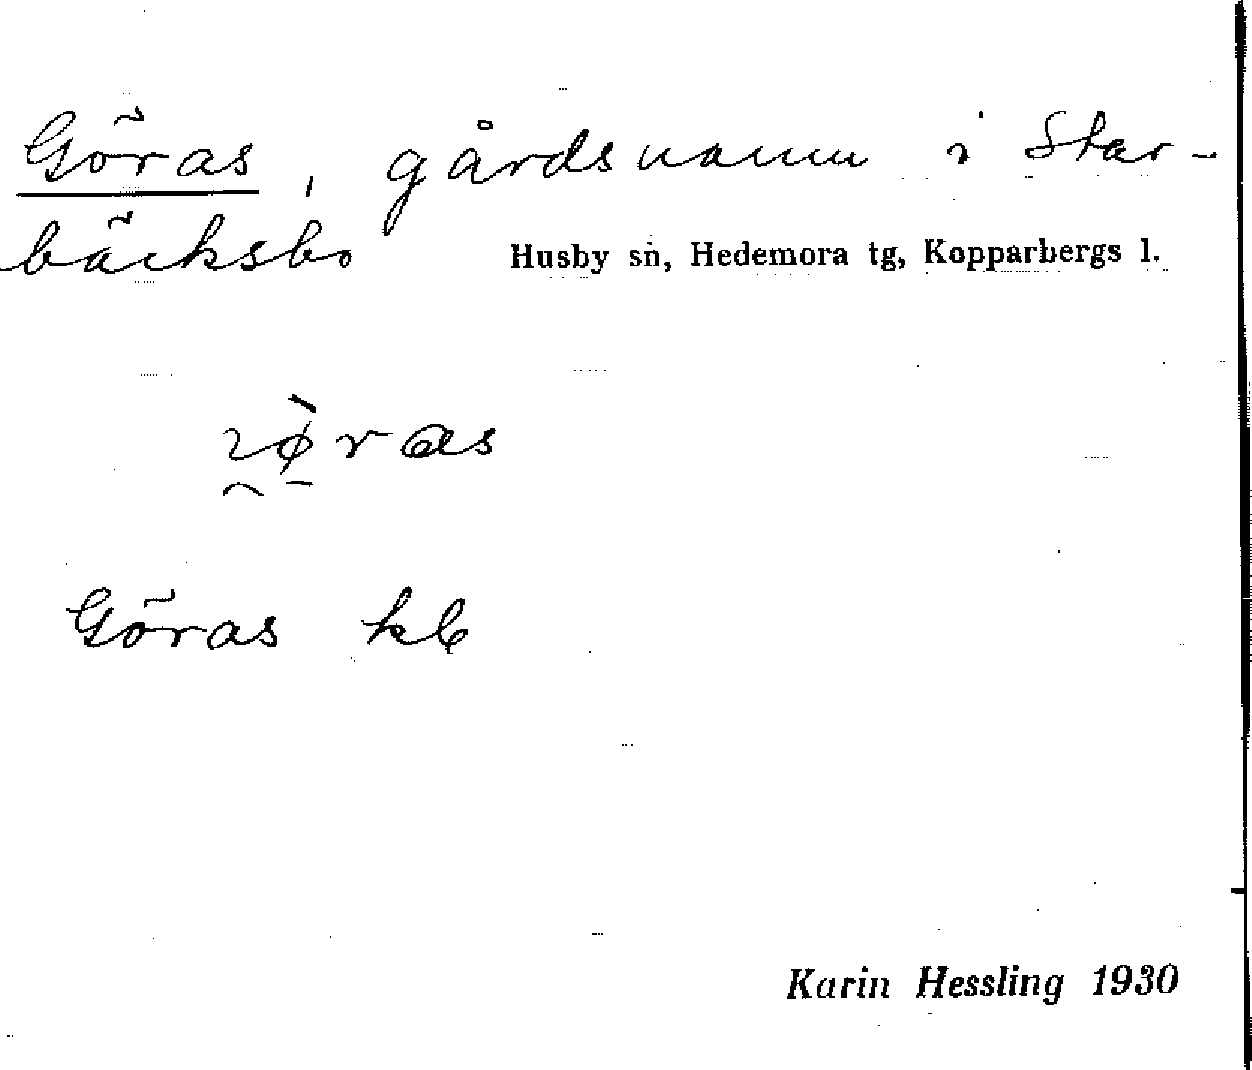 Göras, gårdsnamn i Star-
bäcksbo Husby sn, Hedemora tg, Kopparbergs l.
Göras kb
Karin Hessling 1930